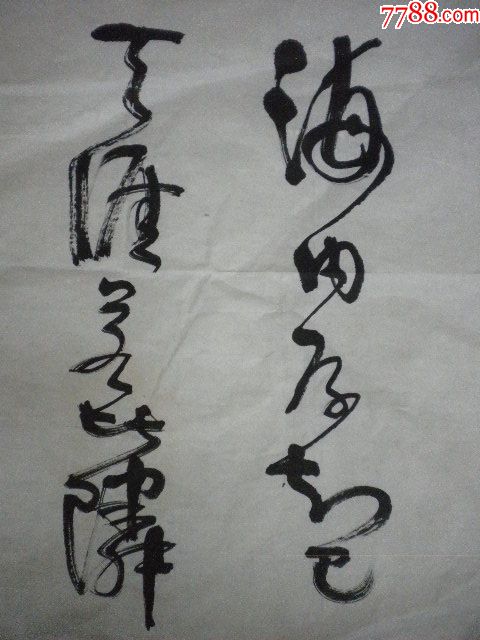 7788.com
海内存知己
天涯若比隣